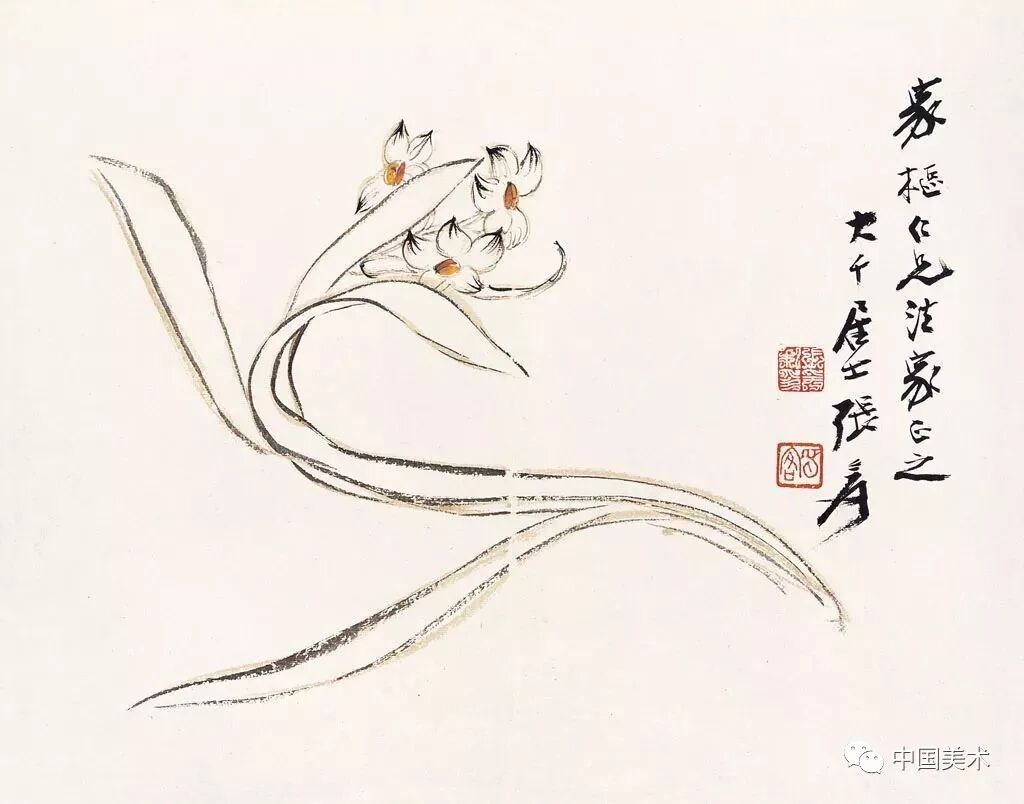 象樞仁兄法家正之
大千居士張爰
中国美术